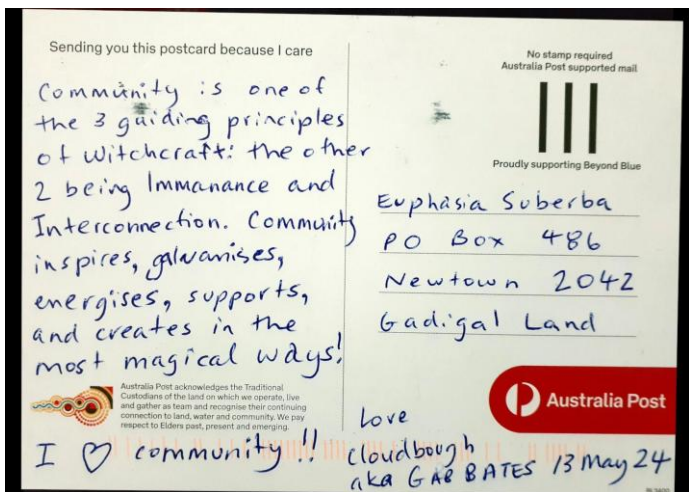 Sending you this postcard because I care
Community is one of
the 3 guiding principles
of Witchcraft: the other
2 being Immanance and
Interconnection. Community
inspires, galvanises,
energises, supports,
and creates in the
most magical ways!
Australia Post acknowledges the Traditional
Custodians of the land on which we operate, live
and gather as team and recognise their continuing
connection to land, water and community. We pay
respect to Elders past, present and emerging.
I ♡ community!!
No stamp required
Australia Post supported mail
Proudly supporting Beyond Blue
Euphasia Suberba
PO Box 486
Newtown 2042
Gadigal Land
Australia Post
Love
cloudbough
aka GAB BATES 13 May 24